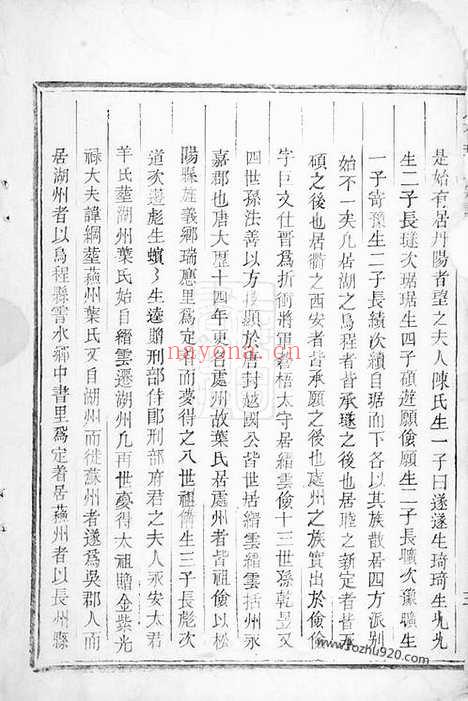 是始有居丹陽者望之夫人陳氏生一子曰遂遂生琦琦生尤尤
生二子長璲次琚琚生四子碩遊願儉願生二子長曠次豫曠生
一子寄豫生二子長績次續自琚而下各以其族散居四方派別
始不一矣凡居湖之烏程者皆承璲之後也居睦之新定者皆承
碩之後也居衢之西安者皆承願之後也處州之族實出於儉儉
字巨文仕晋爲折衝將軍蒼梧太守居縉雲儉十三世孫乾昱又
四世孫法善以方伎顯於唐封越國公皆世居縉雲縉雲括州永
嘉郡也唐大歷十四年更名處州故葉氏居處州者皆祖儉以松
陽縣旌義鄉瑞應里爲定著而夢得之八世祖儕生三子長彪次
道次逷彪生蠙蠙生逵贈刑部侍郎刑部府君之夫人永安太君
羊氏塟湖州葉氏始自縉雲遷湖州凡再世夢得大祖贈金紫光
祿大夫諱綱塟蘓州葉氏又自湖州而徙蘇州者遂爲吳郡人而
居湖州者以烏程縣霅水鄉中書里爲定著居蘓州者以長州縣
三
nayona.cn
www.fozhu920.com